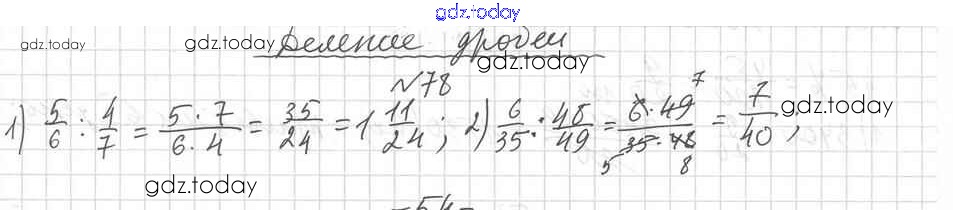 gdz.today
gdz.today gdz.today Деление дробей
gdz.today
№78
1) 5/6 : 4/7 = 5·7/6·4 = 35/24 = 1 11/24; 2) 6/35 : 48/49 = 6·49/35·48 = 7/40; gdz.today
7
5 8
gdz.today